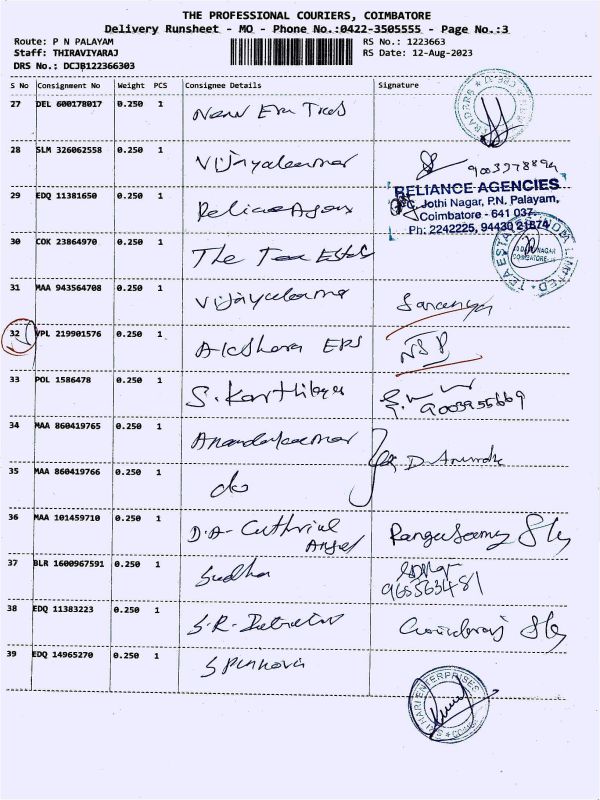 THE PROFESSIONAL COURIERS, COIMBATORE
Delivery Runsheet - MO - Phone No.:0422-3505555 - Page No.:3
Route: P N PALAYAM RS No.: 1223663
Staff: THIRAVIYARAJ RS Date: 12-Aug-2023
DRS No.: DCJB122366303
S No Consignment No Weight PCS Consignee Details Signature
27 DEL 600178017 0.250 1 New Era
28 SLM 326062558 0.250 1 Vijayakumar
29 EDQ 11381650 0.250 1
RELIANCE AGENCIES
Jothi Nagar, P.N. Palayam,
Coimbatore - 641 037.
Ph: 2242225, 94430 21874
30 COK 23864970 0.250 1 The Tea Estate
31 MAA 943564708 0.250 1 Saranya
32 VPL 219901576 0.250 1 Akshara EPS NSP
33 POL 1586478 0.250 1 S. Karthikeyan
9003955669
34 MAA 860419765 0.250 1 Anandakumar
35 MAA 860419766 0.250 1 do
36 MAA 101459710 0.250 1 D.A- Rangasamy
37 BLR 1600967591 0.250 1 Sudha
965563481
38 EDQ 11383223 0.250 1 S.R-
39 EDQ 14965270 0.250 1